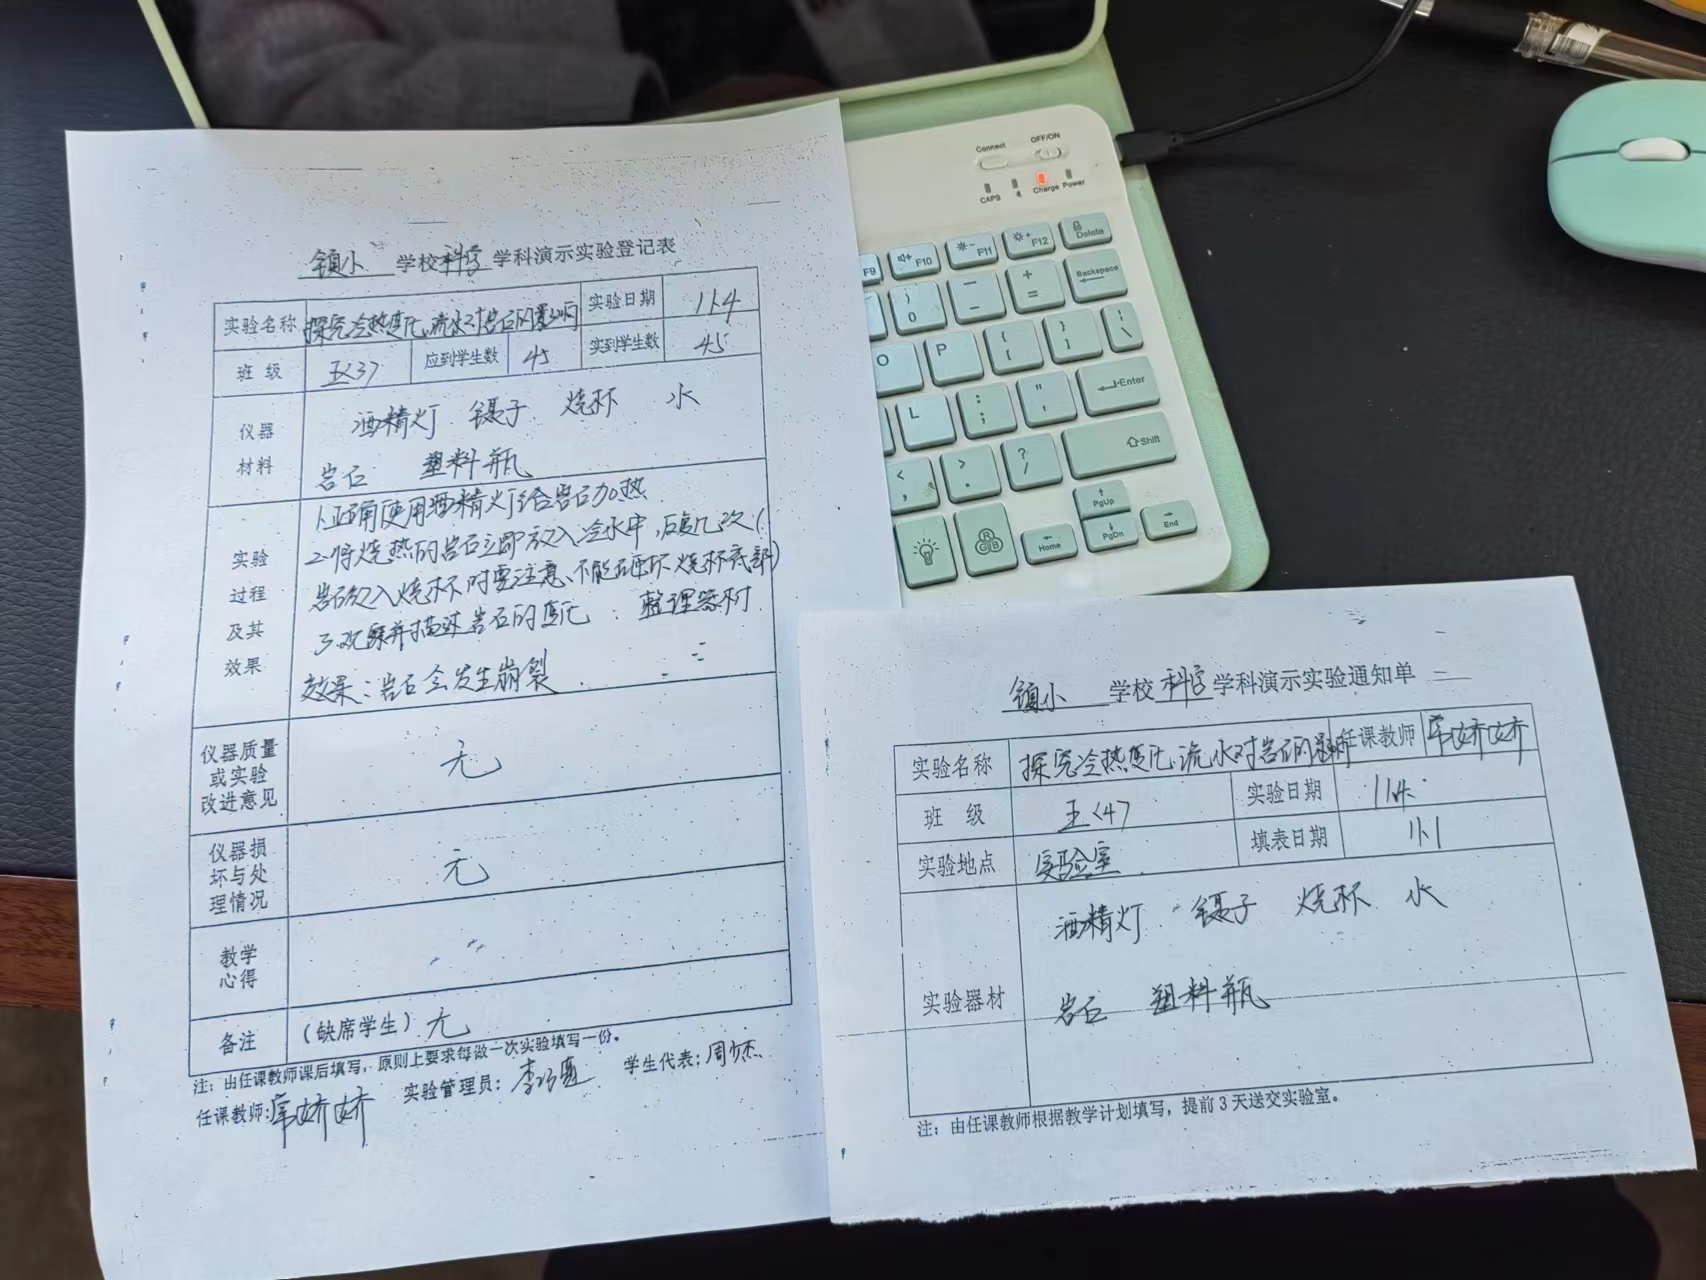 镇小 学校 科学 学科演示实验登记表
实验名称 探究冷热变化、流水对岩石的影响 实验日期 11.4
班 级 五<3> 应到学生数 45 实到学生数 45
仪器材料 酒精灯 镊子 烧杯 水
岩石 塑料瓶
实验过程及其效果
1.正确使用酒精灯给岩石加热
2.将烧热的岩石立即放入冷水中,反复几次(
岩石放入烧杯时要注意、不能砸坏烧杯底部)
3.观察并描述岩石的变化 整理器材
效果:岩石会发生崩裂
仪器质量或实验改进意见 无
仪器损坏与处理情况 无
教学心得
备注 (缺席学生) 无
注:由任课教师课后填写,原则上要求每做一次实验填写一份。
任课教师: 娇娇 实验管理员: 李 学生代表: 周 杰
镇小 学校 科学 学科演示实验通知单
实验名称 探究冷热变化、流水对岩石的影响 任课教师 娇娇
班 级 五<4> 实验日期 11.4
实验地点 实验室 填表日期 11.1
实验器材 酒精灯 镊子 烧杯 水
岩石 塑料瓶
注:由任课教师根据教学计划填写,提前3天送交实验室。
Connect OFF/ON
CAPS Charge Power
F9 F10 F11 F12 Delete
) 0 — - + = Backspace
O P { [ } ] | \
L : ; " ' Enter
< , > . ? / Shift
PgUp
RGB Home PgDn End